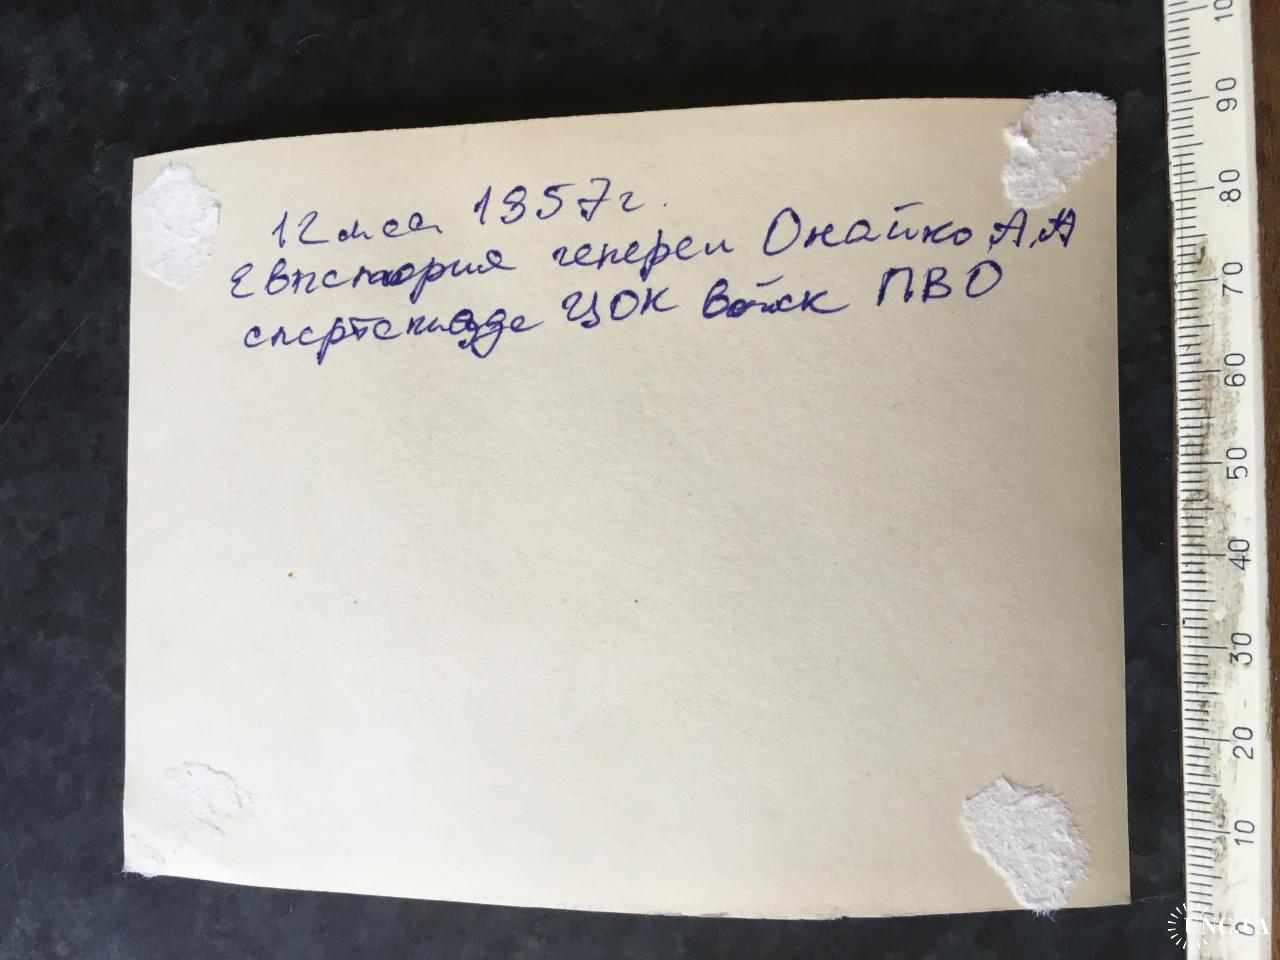 12 мая 1957 г.
Евпатория генерал Онайко А.А
спартакиаде ЦОК Войск ПВО
100
90
80
70
60
50
40
30
20
10
0
UNC.UA